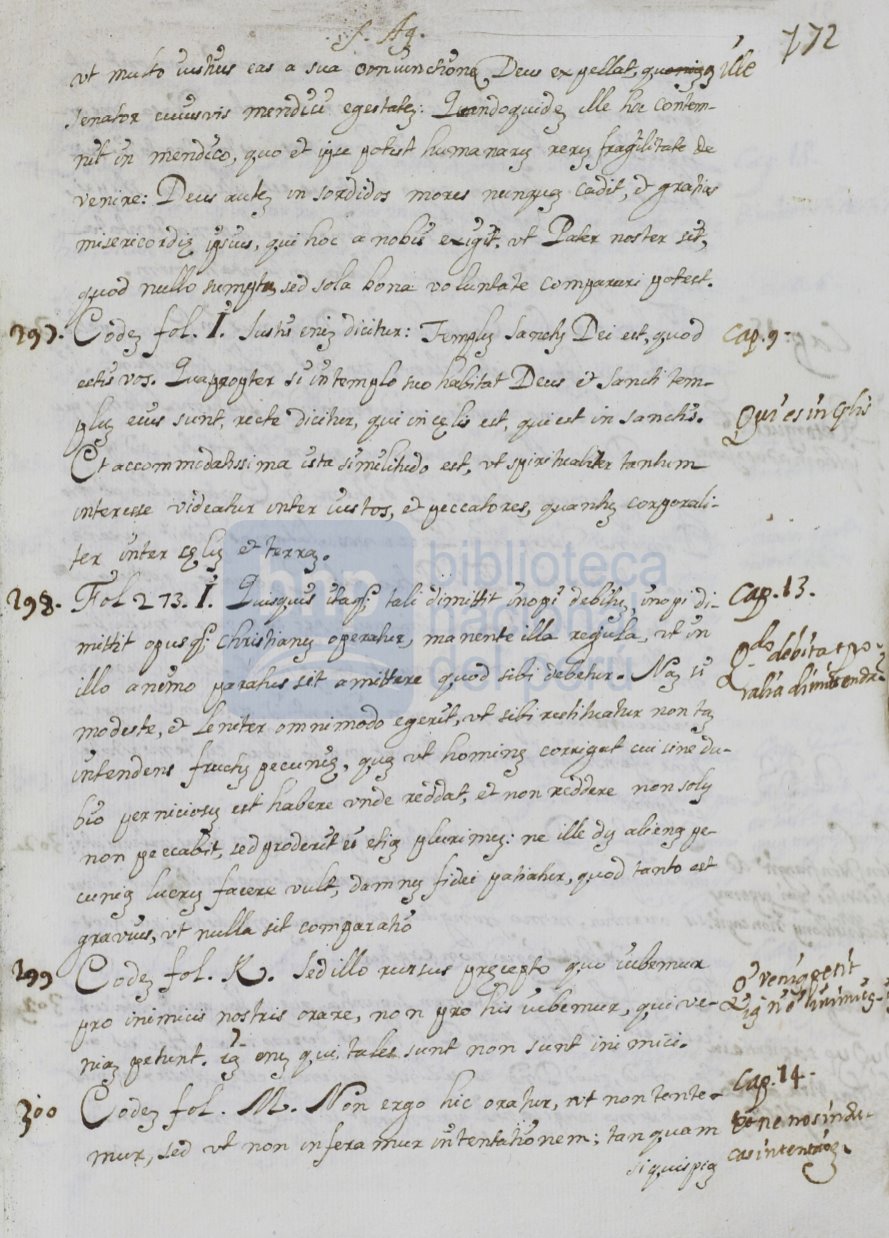 S. Ag.
772
ut multo iustius eas a sua coniunctione Deus expellat, quam ille
senator cuiusvis mendici egestatẽ: Quandoquidẽ ille hæ contem-
nit in mendico, quo et ipse potest humanarũ rerũ fragilitate de
venire: Deus autẽ in sordidos mores nunquã cadit, et gratias
misericordiæ ipsius, qui hoc a nobis exigit, ut Pater noster sit,
quod nullo sumptu, sed sola bona voluntate comparari potest.
297. Codẽ fol. I. Iustis enim dicitur: Templũ Sanctũ Dei est, quod
Cap. 9.
estis vos. Quapropter si in templo suo habitat Deus et Sancti tem-
plũ eius sunt, recte dicitur, qui in cęlis est, qui est in sanctis.
Qui es in Cęlis
Et accommodatissima ista similitudo est, ut spiritualiter tantum
interesse videatur inter iustos, et peccatores, quantũ corporali-
ter inter cęlũ et terrã.
298. Fol 273. I. Quisquis itaq; tali dimittit inopi debitũ, inopi di-
Cap. 13.
mittit opusq; Christianũ operatur, manente illa regula, ut in
illo animo paratus sit amittere quod sibi debetur. Nã si
modeste, et leniter omnimodo egerit, ut sibi restituatur non tã
intendens fructũ pecuniæ, quã ut hominẽ corrigat cui sine du-
bio perniciosũ est habere unde reddat, et non reddere non solũ
non peccabit, sed proderit ei etiã plurimũ: ne ille dũ alienã pe-
cuniã lucrũ facere vult, damnũ fidei patiatur, quod tanto est
gravius, ut nulla sit comparatio
299 Codẽ fol. K. Sed illo rursus præcepto quo iubemur
pro inimicis nostris orare, non pro his iubemur, qui ve-
niã petunt. iã enĩ qui tales sunt non sunt inimici.
300 Codẽ fol. M. Non ergo hic oratur, ut non tente-
Cap. 14.
mur, sed ut non inferamur in tentationem; tanquam
si quispiã